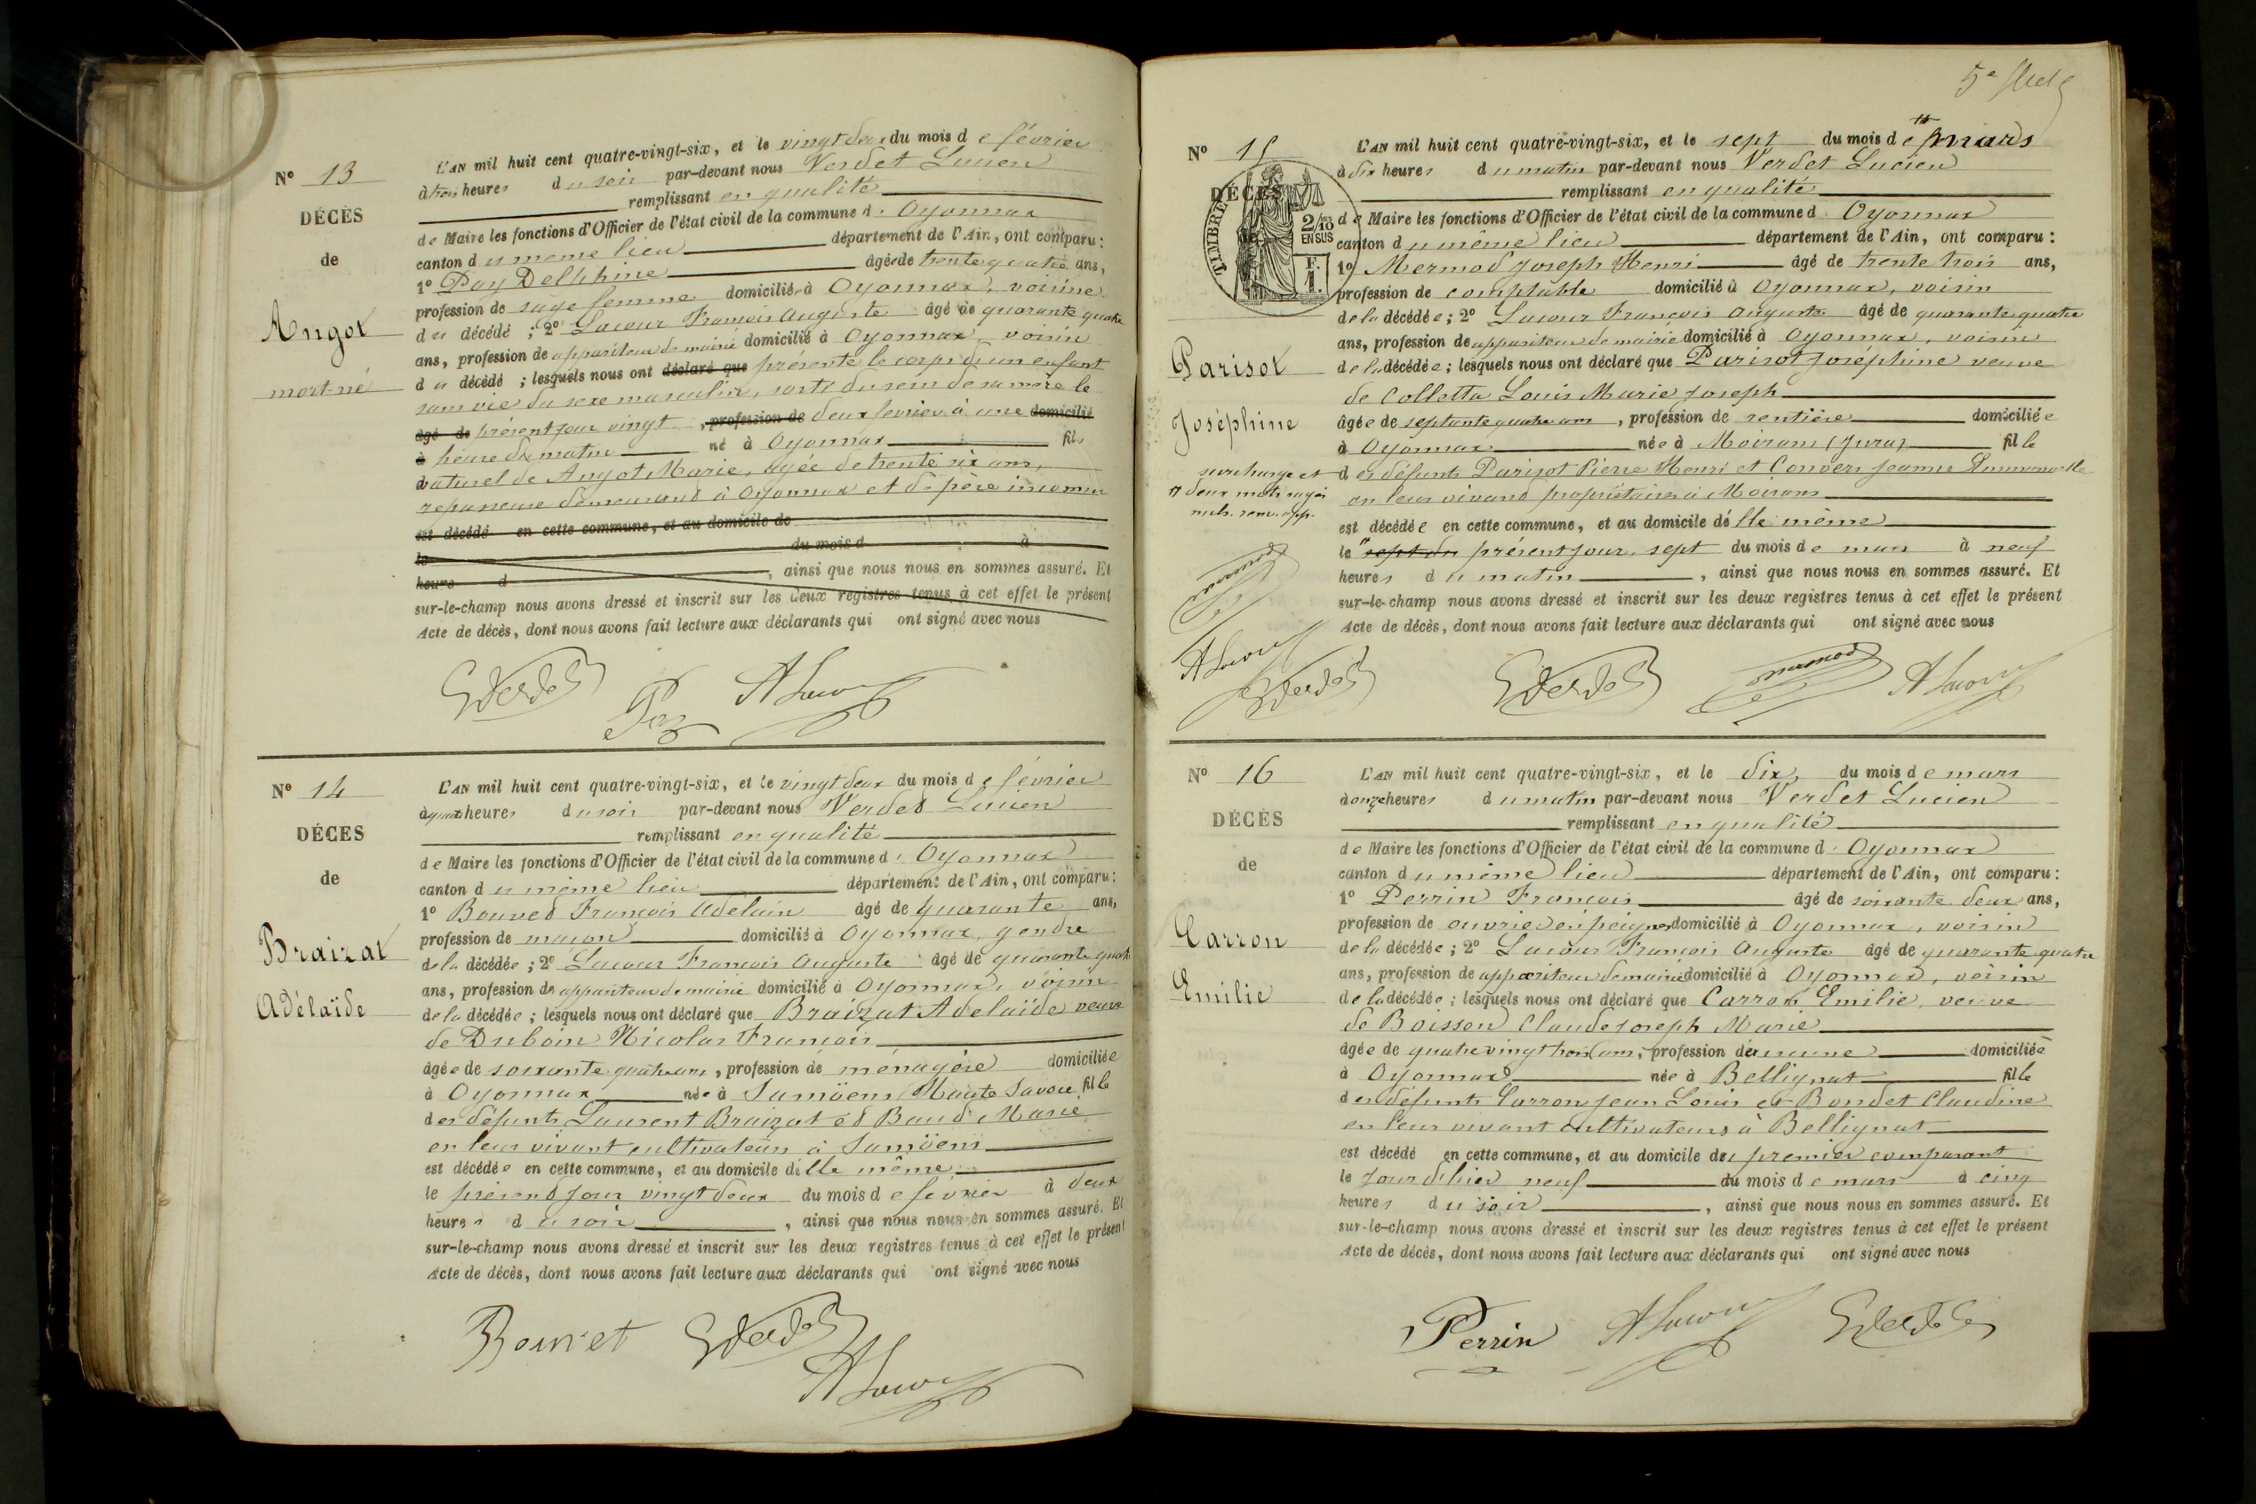 N° 13
DÉCÈS
de
Angot
mort-né
L'AN mil huit cent quatre-vingt-six, et le vingt deux du mois de février
à trois heures du soir par-devant nous Verdet Lucien
remplissant en qualité
de Maire les fonctions d'Officier de l'état civil de la commune d' Oyonnax
canton du même lieu département de l'Ain, ont comparu :
1° Pay Delphine âgée de trente quatre ans,
profession de sage femme domicilié à Oyonnax, voisine
du décédé ; 2° Lacour François Auguste âgé de quarante quatre
ans, profession de appariteur de mairie domicilié à Oyonnax, voisin
du décédé ; lesquels nous ont déclaré que présenté le corps d'un enfant
sans vie du sexe masculin, sorti du sein de sa mère le
âgé de présent jour vingt , profession de deux février à une domicilié
à heure du matin né à Oyonnax fils
naturel de Angot Marie, âgée de trente six ans,
repasseuse demeurant à Oyonnax et de père inconnu
est décédé en cette commune, et au domicile de
le du mois d à
heure d , ainsi que nous nous en sommes assuré. Et
sur-le-champ nous avons dressé et inscrit sur les deux registres tenus à cet effet le présent
Acte de décès, dont nous avons fait lecture aux déclarants qui ont signé avec nous
Verdet
ALacour
N° 14
DÉCES
de
Braizat
Adélaïde
L'AN mil huit cent quatre-vingt-six, et le vingt deux du mois de février
à quatre heures du soir par-devant nous Verdet Lucien
remplissant en qualité
de Maire les fonctions d'Officier de l'état civil de la commune d' Oyonnax
canton du même lieu département de l'Ain, ont comparu :
1° Bouvet François Adelain âgé de quarante ans,
profession de maçon domicilié à Oyonnax, gendre
de la décédée ; 2° Lacour François Auguste âgé de quarante quatre
ans, profession de appariteur de mairie domicilié à Oyonnax, voisin
de la décédée ; lesquels nous ont déclaré que Braizat Adelaïde veuve
de Duboin Nicolas François
âgée de soixante quatre ans, profession de ménagère domiciliée
à Oyonnax née à Samöens (Haute Savoie, fille
des défunts Laurent Braizat et Baud Marie
en leur vivant cultivateurs à Samöens
est décédée en cette commune, et au domicile d'elle même
le présent jour vingt deux du mois de février à deux
heures du soir , ainsi que nous nous en sommes assuré. Et
sur-le-champ nous avons dressé et inscrit sur les deux registres tenus à cet effet le présent
Acte de décès, dont nous avons fait lecture aux déclarants qui ont signé avec nous
Bouvet Verdet
ALacour
N° 15
DÉCÈS
TIMBRE
2/10
EN SUS
F.
1.
Parisot
Joséphine
surcharge et
deux mots rayés
nuls. renv. app.
L'AN mil huit cent quatre-vingt-six, et le sept du mois de mars
à dix heures du matin par-devant nous Verdet Lucien
remplissant en qualité
de Maire les fonctions d'Officier de l'état civil de la commune d' Oyonnax
canton du même lieu département de l'Ain, ont comparu :
1° Mermod Joseph Henri âgé de trente trois ans,
profession de comptable domicilié à Oyonnax, voisin
de la décédée ; 2° Lacour François Auguste âgé de quarante quatre
ans, profession de appariteur de mairie domicilié à Oyonnax, voisin
de la décédée ; lesquels nous ont déclaré que Parisot Joséphine veuve
de Colletta Louis Marie Joseph
âgée de septante quatre ans, profession de rentière domiciliée
à Oyonnax née à Moirans (Jura) fille
des défunts Parisot Pierre Henri et Convers Jeanne Emmanuelle
en leur vivant propriétaires à Moirans
est décédée en cette commune, et au domicile d'elle même
le présent jour sept du mois de mars à neuf
heures du matin , ainsi que nous nous en sommes assuré. Et
sur-le-champ nous avons dressé et inscrit sur les deux registres tenus à cet effet le présent
Acte de décès, dont nous avons fait lecture aux déclarants qui ont signé avec nous
Mermod
ALacour
Verdet
Verdet Mermod ALacour
N° 16
DÉCÈS
de
Carron
Emilie
L'AN mil huit cent quatre-vingt-six, et le dix du mois de mars
à onze heures du matin par-devant nous Verdet Lucien
remplissant en qualité
de Maire les fonctions d'Officier de l'état civil de la commune d' Oyonnax
canton du même lieu département de l'Ain, ont comparu :
1° Perrin François âgé de soixante deux ans,
profession de ouvrier en peignes domicilié à Oyonnax, voisin
de la décédée ; 2° Lacour François Auguste âgé de quarante quatre
ans, profession de appariteur de mairie domicilié à Oyonnax, voisin
de la décédée ; lesquels nous ont déclaré que Carron Emilie, veuve
de Boisson Claude Joseph Marie
âgée de quatre vingt trois ans, profession d'aucune domiciliée
à Oyonnax née à Bellignat fille
des défunts Carron Jean Louis et Bondet Claudine
en leur vivant cultivateurs à Bellignat
est décédé en cette commune, et au domicile du premier comparant
le jour d'hier neuf du mois de mars à cinq
heures du soir , ainsi que nous nous en sommes assuré. Et
sur-le-champ nous avons dressé et inscrit sur les deux registres tenus à cet effet le présent
Acte de décès, dont nous avons fait lecture aux déclarants qui ont signé avec nous
Perrin ALacour Verdet